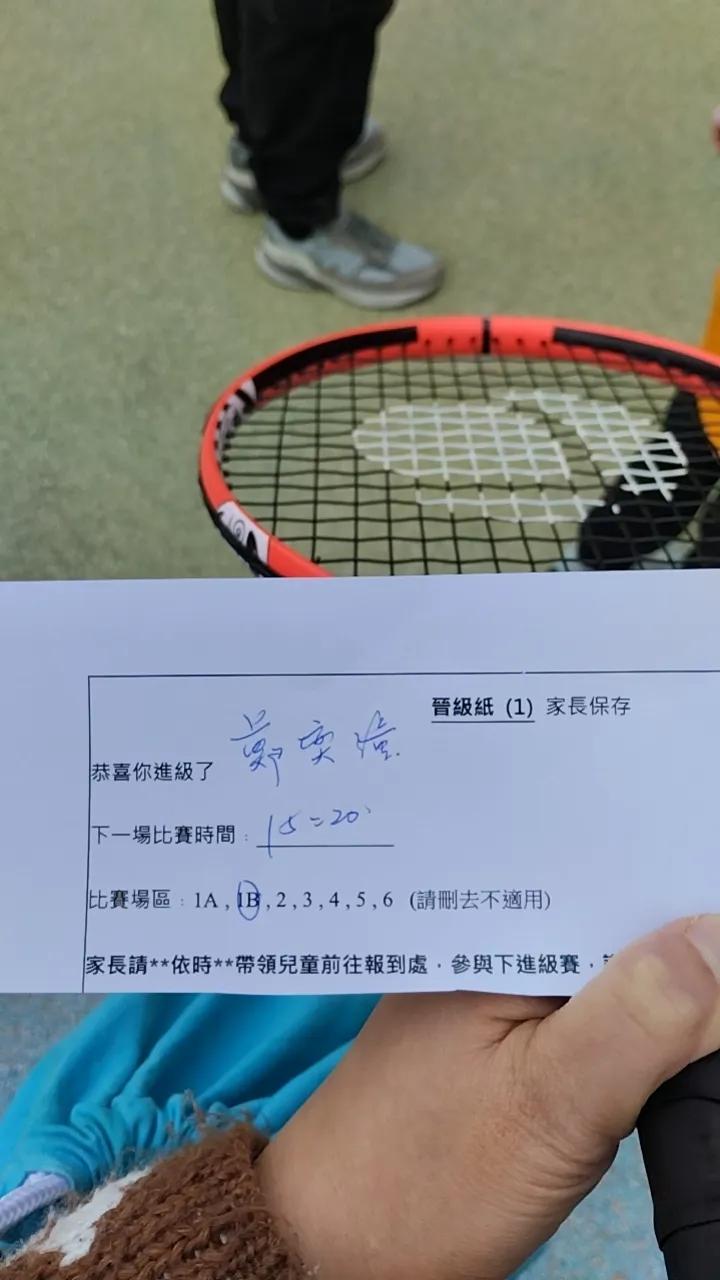 晉級紙 (1) 家長保存
恭喜你進級了 鄭奕
下一場比賽時間：15=20'
比賽場區：1A , 1B , 2 , 3 , 4 , 5 , 6 (請刪去不適用)
家長請**依時**帶領兒童前往報到處，參與下進級賽，